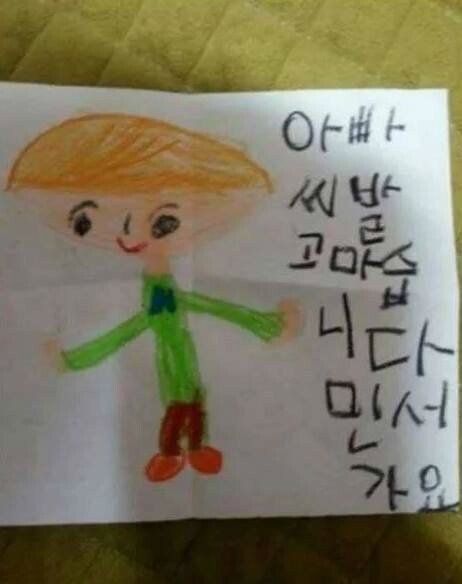 아빠
씨발
고마습
니다
민서
가요